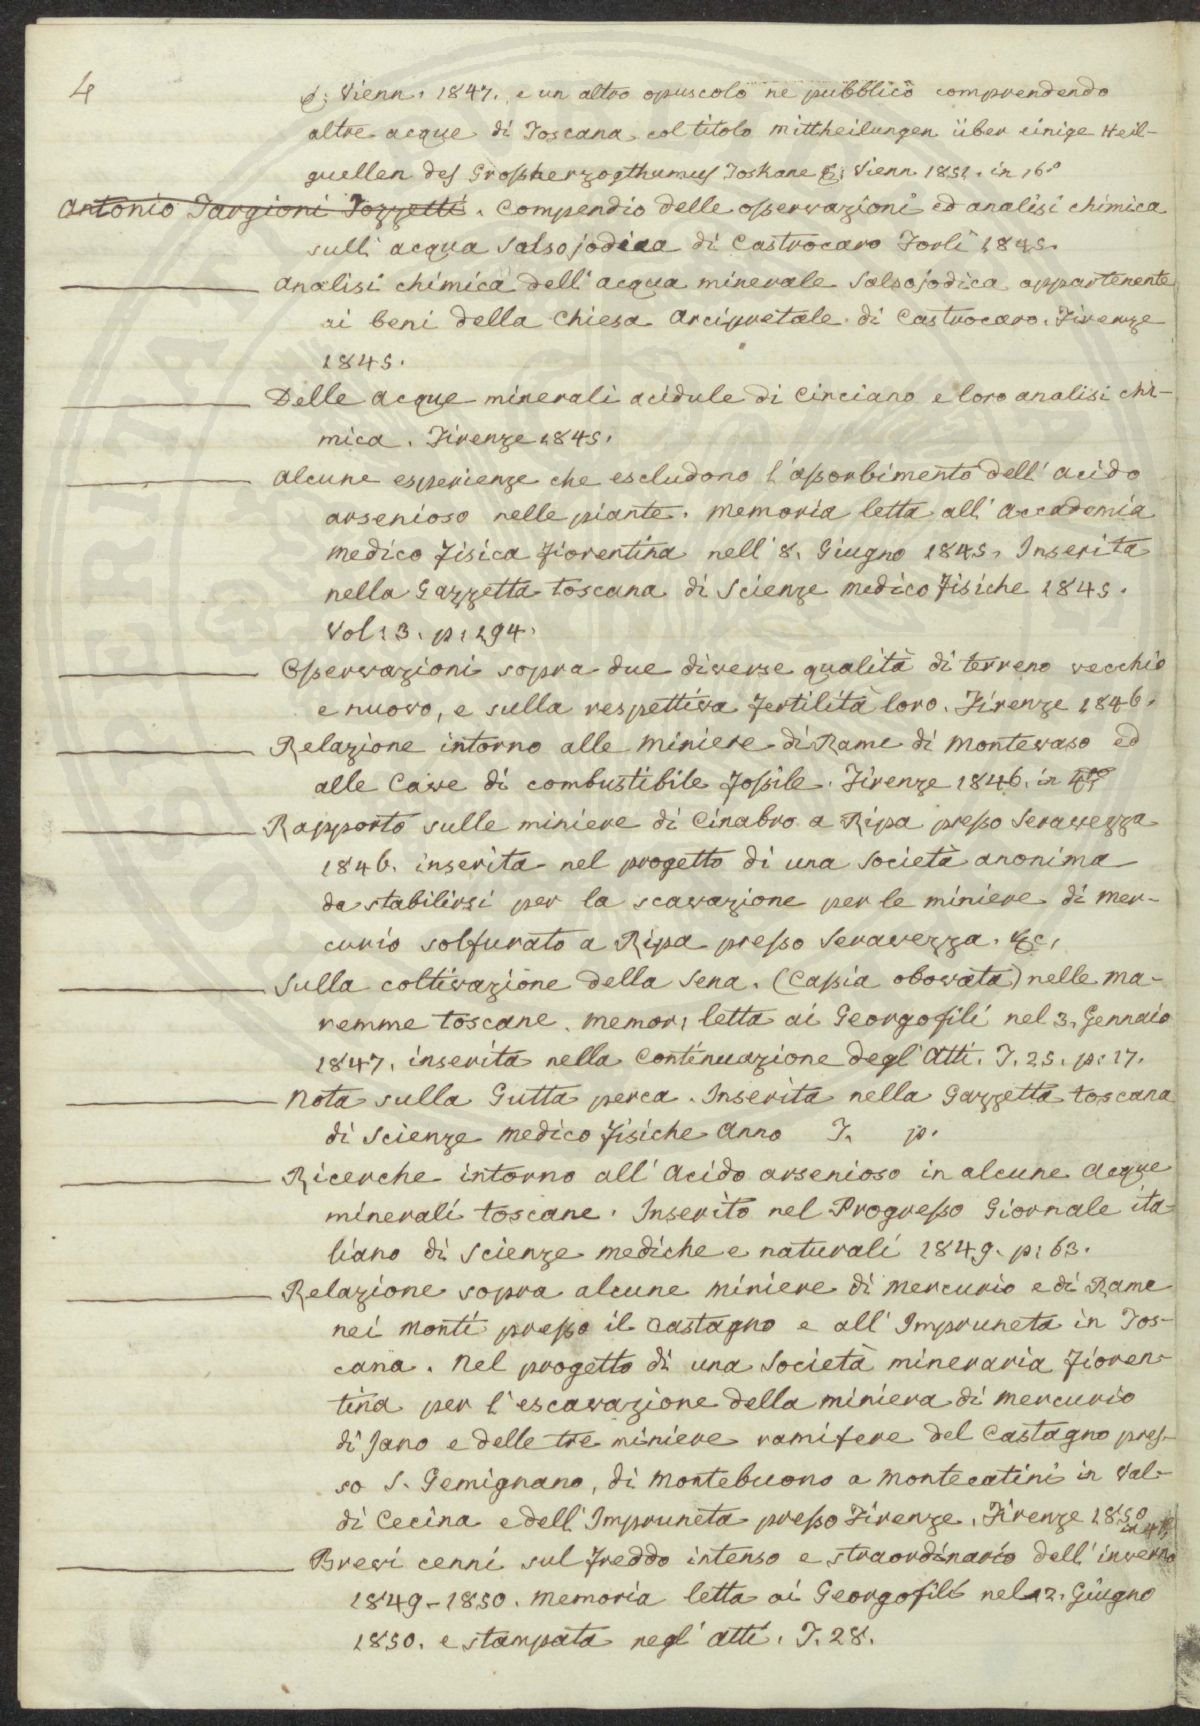 4
&; Vienn. 1847. e un altro opuscolo ne pubblicò comprendendo
altre acque di Toscana col titolo mittheilungen über einige Heil-
quellen des Grossherzogthumus Toskane &; Vienn 1851. in 16°
Antonio Targioni Tozzetti. Compendio delle osservazioni ed analisi chimica
sull' acqua salsojodica di Castrocaro Forlì 1845.
Analisi chimica dell' acqua minerale salsojodica appartenente
ai beni della Chiesa Arcipretale di Castrocaro. Firenze
1845.
Delle acque minerali acidule di Cinciano e loro analisi chi-
mica. Firenze 1845.
Alcune esperienze che escludono l'assorbimento dell' acido
arsenioso nelle piante. Memoria letta all' Accademia
medico fisica fiorentina nell' 8. Giugno 1845. Inserita
nella Gazzetta toscana di Scienze medico fisiche 1845.
Vol: 3. p: 194.
Osservazioni sopra due diverse qualità di terreno vecchio
e nuovo, e sulla respettiva fertilità loro. Firenze 1846.
Relazione intorno alle miniere di Rame di Montevaso ed
alle Cave di combustibile fossile. Firenze 1846. in 4to
Rapporto sulle miniere di Cinabro a Ripa presso Seravezza
1846. inserita nel progetto di una società anonima
da stabilirsi per la scavazione per le miniere di mer-
curio solfurato a Ripa presso Seravezza. &c.
Sulla coltivazione della Sena. (Cassia obovata) nelle ma-
remme toscane. memor: letta ai Georgofili nel 3. Gennaio
1847. inserita nella Continuazione degl' Atti. T. 25. p: 17.
Nota sulla Gutta perca. Inserita nella Gazzetta toscana
di Scienze medico fisiche Anno T. p.
Ricerche intorno all' Acido arsenioso in alcune Acque
minerali toscane. Inserito nel Progresso Giornale ita-
liano di Scienze mediche e naturali 1849. p: 63.
Relazione sopra alcune miniere di Mercurio e di Rame
nei monti presso il Castagno e all' Impruneta in Tos-
cana. Nel progetto di una Società mineraria fioren-
tina per l'escavazione della miniera di mercurio
di Jano e delle tre miniere ramifere del Castagno pres-
so S. Gemignano, di Montebuono a Montecatini in Val-
di Cecina e dell' Impruneta presso Firenze. Firenze 1850
in 4to
Brevi cenni sul freddo intenso e straordinario dell' inverno
1849-1850. memoria letta ai Georgofili nel 2. Giugno
1850. e stampata negl' Atti. T. 28.